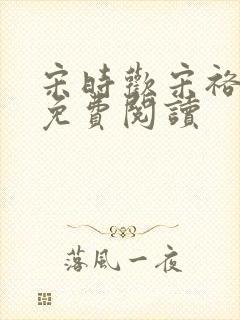 宋時歡宋裕
免費閱讀
落風一夜